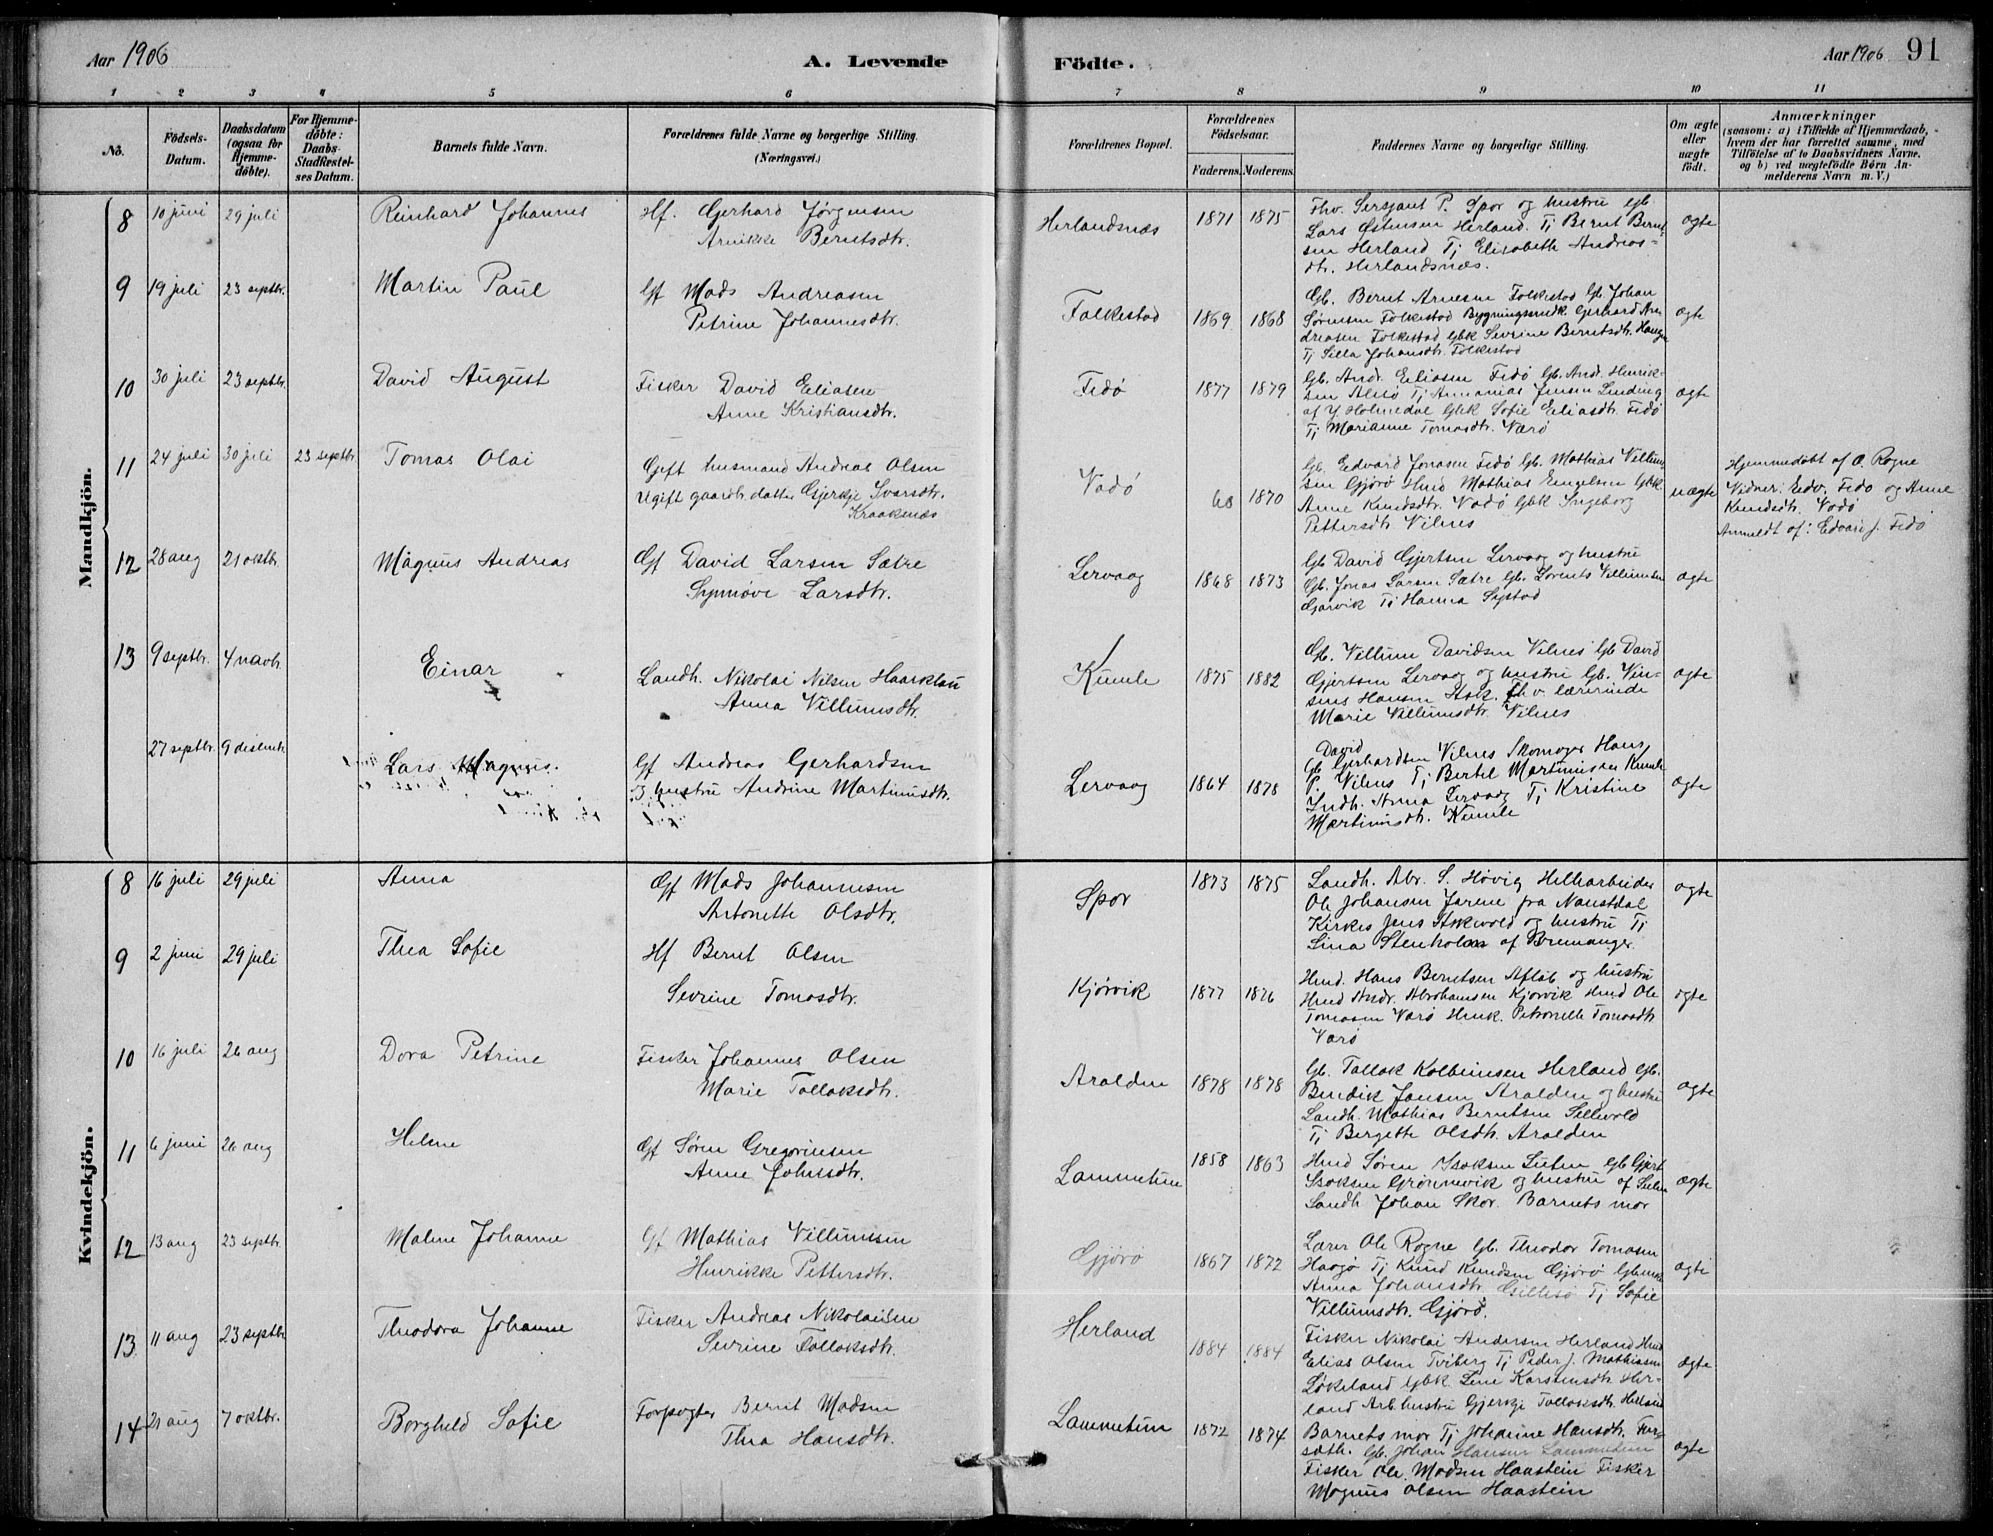 Aar 1906
A. Levende
Födte.
Aar 1906 91
1 2 3 4 5 6 7 8 9 10 11
No.
Födsels-Datum.
Daabsdatum (ogsaa for Hjemme-döbte).
For Hjemme-döbte: Daabs-Stadfæstel-ses Datum.
Barnets fulde Navn.
Forældrenes fulde Navne og borgerlige Stilling. (Næringsvei.)
Forældrenes Bopæl.
Forældrenes Födselsaar.
Faderens. Moderens.
Faddernes Navne og borgerlige Stilling.
Om ægte eller uægte födt.
Anmærkninger
(saasom: a) i Tilfælde af Hjemmedaab, hvem der har forrettet samme, med Tilföielse af to Daabsvidners Navne, og b) ved uægtefödte Börn An-melderens Navn m. V.)
Mandkjön.
8 10 juni 29 juli Reinhard Johannes
Hf. Gerhard Jørgensen
Annikke Berntsdtr.
Herlandsnæs 1871 1875
Fhv. Sersjant P. Spor og hustru Gb
Lars Østensen Herland. Tj Bernt Bernt-
sen Herland Tj Elisabeth Andreas-
dtr. Herlandsnæs.
ægte
9 19 juli 23 septbr. Martin Paul
Gf Mads Andreasen
Petrine Johannesdtr.
Folkestad 1869 1868
Gb. Bernt Arnesen Folkestad Gb Johan
Sørensen Folkestad Bygningssnedk Gerhard An-
dreasen Folkestad Gbk Sevrine Berntsdtr. Hauge
Tj Silla Johansdtr. Folkestad
ægte
10 30 juli 23 septbr. David August
Fisker David Eliasen
Anne Kristiansdtr.
Fedø 1877 1879
Gb. Andr. Eliasen Fedø Gb. Andr. Henrik-
sen Alnø Tj Annanias Jensen Sinding
af Y. Holmedal Gbk Sofie Eliasdtr. Fedø
Tj Marianne Tomasdtr. Værø
ægte
11 24 juli 30 juli 23 septbr Tomas Olai
Gift husmand Andreas Olsen
Ugift gaardbr. datter Gjerkje Ivarsdtr.
Kraaknæs
Vadø 68 1870
Gb. Edvard Jonasen Fedø Gb. Mathias Villum-
sen Gjörö Hmd Mathias Engelsen Gbk
Anne Knudsdtr. Vadø Gbk Ingeborg
Pettersdtr Vilnes
uægte
Hjemmedøbt af O. Rogne
Vidner: Edv. Fedø og Anne
Knudsdtr. Vadø
Anmeldt af: Edvard J. Fedø
12 28 aug 21 oktbr. Magnus Andreas
Gf David Larsen Sætre
Synnøve Larsdtr.
Lervaag 1868 1873
Gb David Gjertsen Lervaag og hustru
Gb. Jonas Larsen Sætre Gb. Lorents Villumsen
Gjørvik Tj Hanna Systad
ægte
13 9 septbr. 4 novbr. Einar
Landh. Nikolai Nilsen Haarklau
Anna Villumsdtr.
Kumle 1875 1882
Gb. Villum Davidsen Vilnes Gb David
Gjertsen Lervaag og hustru Gb. Vin-
sens Hansen Ask. Fhv. lærerinde
Marie Villumsdtr. Vilnes
ægte
27 septbr. 9 desembr Lars Magnus.
Gf Andreas Gerhardsen
hustru Andrine Martinusdtr.
Lervaag 1864 1878
David
Gb Gerhardsen Vilnes Skomager Hans
P. Vilnes Tj Bertel Martinussen Kumle
Indh. Anna Lervaag Tj Kristine
Martinusdtr. Kumle
ægte
Kvindekjön.
8 16 juli 29 juli Anna
Gf Mads Johannesen
Antonette Olsdtr.
Spor 1873 1875
Landh. Abr. S. Høvig Helkarbeider
Ole Johansen Jarene fra Naustdal
Kirkes Jens Askevold og hustru Tj
Lina Stenholm af Bremanger.
ægte
9 2 juni 29 juli Thea Sofie
Hf Bernt Olsen
Sevrine Tomasdtr.
Kjørvik 1877 1876
Hmd. Hans Berntsen Aflab og hustru
Hmd Andr. Abrahamsen Kjørvik Hmd Ole
Tomasen Værø Hmk. Petronelle Tomasdtr
Værø
ægte
10 16 juli 26 aug Dora Petrine
Fisker Johannes Olsen
Marie Tollaksdtr.
Aralden 1878 1878
Gb. Tollak Kolbeinsen Herland Gb.
Bendik Jansen Aralden og hustru
Landh. Mathias Berntsen Sellevold
Tj Bergette Olsdtr. Aralden
ægte
11 6 juni 26 aug Helene
Gf Søren Gregoriusen
Anne Johnsdtr.
Lammetun 1858 1863
Hmd Søren Isaksen Sulen Gb Gjert
Isaksen Grønnevik og hustru af Sulen
Landh Johan Skor. Barnets mor
ægte
12 13 aug 23 septbr. Malene Johanne
Gf Mathias Villumsen
Henrikke Pettersdtr.
Gjörö 1867 1872
Lærer Ole Rogne Gb. Theodor Tomasen
Haagø Tj Knud Knudsen Gjörö Gbenk
Anna Johansdtr. Gillesø Tj Sofie
Villumsdtr. Gjörö.
ægte
13 11 aug 23 septbr Theodora Johanne
Fisker Andreas Nikolaisen
Sevrine Tollaksdtr.
Herland 1884 1884
Fisker Nikolai Andersen Herland Hmd
Elias Olsen Tviberg Tj Peder J. Mathiasen
Løkeland Gbk. Lene Karstensdtr. Her-
land Arb.hustru Gjerkje Tollaksdtr.
ægte
14 21 aug 7 oktbr. Borghild Sofie
Forpagter Bernt Madsen
Thea Hansdtr.
Lammetun 1872 1874
Barnets mor Tj Johanne Hansdtr.
Gb. Johan Hansen Lammetun
Fisker Ole Madsen Haastein Fisker
Magnus Olsen Haastein
ægte